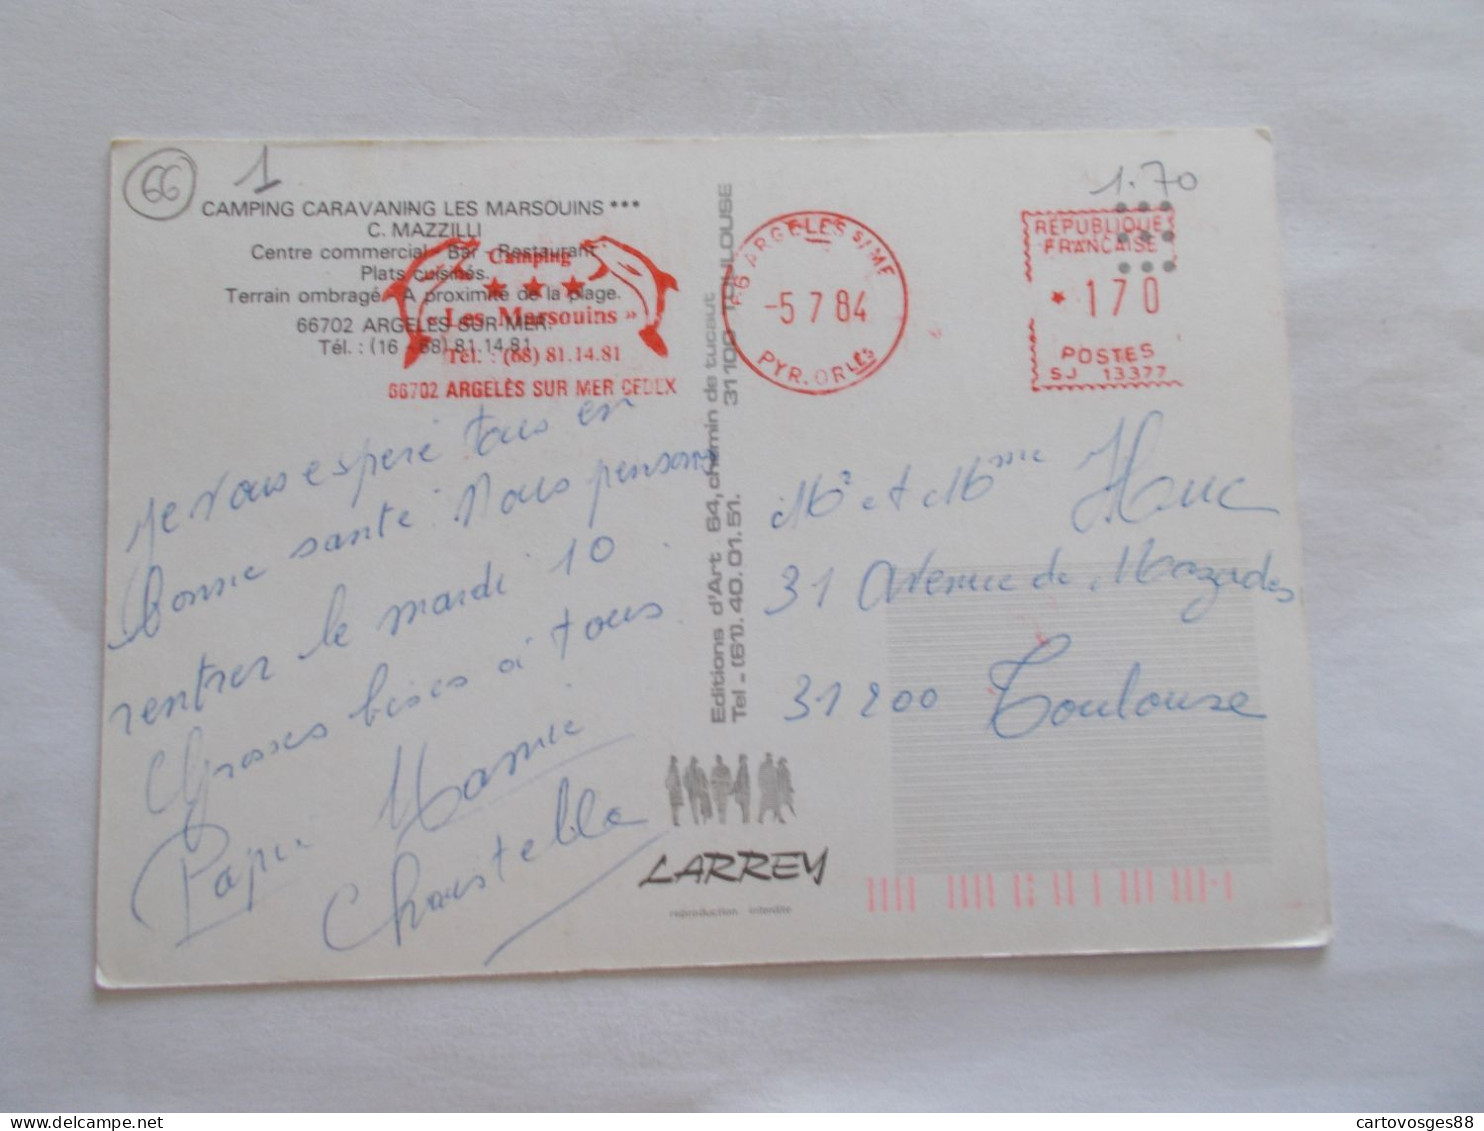 66
1
1.70
CAMPING CARAVANING LES MARSOUINS ***
C. MAZZILLI
Centre commercial - Bar - Restaurant
Plats cuisinés.
Terrain ombragé. A proximité de la plage.
66702 ARGELES SUR MER
Tél. : (16 - 68) 81.14.81
Camping
★ ★ ★
« Les Marsouins »
Tél. : (68) 81.14.81
66702 ARGELÈS SUR MER CEDEX
66 ARGELES S/MER
-5 7 84
PYR. ORLES
RÉPUBLIQUE
FRANÇAISE
* 170
POSTES
SJ 13377
Je vous espère tous en
bonne santé. Nous pensons
rentrer le mardi 10.
Grosses bises à tous.
Papi Mamie
Christelle
Editions d'Art 64, chemin de tucaut 31100 TOULOUSE
Tel - (61). 40. 01. 51.
Mr et Mme Huc
31 Avenue de Mazades
31200 Toulouse
LARREY
reproduction interdite
cartovosges88